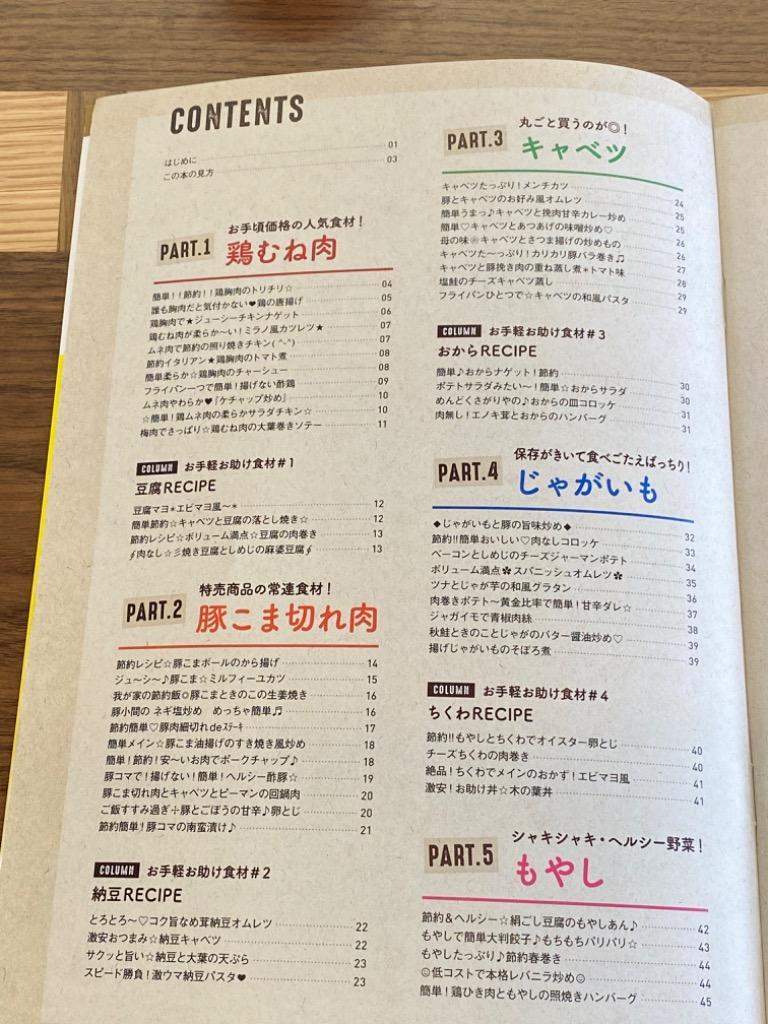 CONTENTS
はじめに 01
この本の見方 03
お手頃価格の人気食材！
PART.1 鶏むね肉
簡単！！節約！！鶏胸肉のトリチリ☆ 04
誰も胸肉だと気付かない♥鶏の唐揚げ 05
鶏胸肉で★ジューシーチキンナゲット 06
鶏むね肉が柔らか〜い！ミラノ風カツレツ★ 07
ムネ肉で節約の照り焼きチキン(^-^) 07
節約イタリアン★鶏胸肉のトマト煮 08
簡単柔らか☆鶏胸肉のチャーシュー 08
フライパン一つで簡単！揚げない酢鶏 09
ムネ肉やわらか♥『ケチャップ炒め』 10
☆簡単！鶏ムネ肉の柔らかサラダチキン☆ 10
梅肉でさっぱり☆鶏むね肉の大葉巻きソテー 11
COLUMN お手軽お助け食材#1
豆腐RECIPE
豆腐マヨ*エビマヨ風〜* 12
簡単節約☆キャベツと豆腐の落とし焼き☆ 12
節約レシピ☆ボリューム満点☆豆腐の肉巻き 13
∮肉なし☆彡焼き豆腐としめじの麻婆豆腐∮ 13
特売商品の常連食材！
PART.2 豚こま切れ肉
節約レシピ☆豚こまボールのから揚げ 14
ジュ〜シ〜♪豚こま☆ミルフィーユカツ 15
我が家の節約飯✿豚こまときのこの生姜焼き 16
豚小間の ネギ塩炒め めっちゃ簡単♬ 16
節約簡単♡豚肉細切れdeｽﾃｰｷ 17
簡単メイン☆豚こま油揚げのすき焼き風炒め 18
簡単！節約！安〜いお肉でポークチャップ♪ 18
豚コマで！揚げない！簡単！ヘルシー酢豚☆ 19
豚こま切れ肉とキャベツとピーマンの回鍋肉 20
ご飯すすみ過ぎ✢豚とごぼうの甘辛♪卵とじ 20
節約簡単！豚コマの南蛮漬け♪ 21
COLUMN お手軽お助け食材#2
納豆RECIPE
とろとろ〜♡コク旨なめ茸納豆オムレツ 22
激安おつまみ☆納豆キャベツ 22
サクッと旨い☆納豆と大葉の天ぷら 23
スピード勝負！激ウマ納豆パスタ♥ 23
丸ごと買うのが◎！
PART.3 キャベツ
キャベツたっぷり！メンチカツ 24
豚とキャベツのお好み風オムレツ 25
簡単うまっ♪キャベツと挽肉甘辛カレー炒め 25
簡単♡キャベツとあつあげの味噌炒め♡ 26
母の味❀キャベツとさつま揚げの炒めもの 26
キャベツた〜っぷり！カリカリ豚バラ巻き♬ 27
キャベツと豚挽き肉の重ね蒸し煮*トマト味 28
塩鮭のチーズキャベツ蒸し 29
フライパンひとつで☆キャベツの和風パスタ 29
COLUMN お手軽お助け食材#3
おからRECIPE
簡単♪おからナゲット！節約 30
ポテトサラダみたい〜！簡単☆おからサラダ 30
めんどくさがりやの♪おからの皿コロッケ 31
肉無し！エノキ茸とおからのハンバーグ 31
保存がきいて食べごたえばっちり！
PART.4 じゃがいも
◆じゃがいもと豚の旨味炒め◆ 32
節約!!簡単おいしい♡肉なしコロッケ 33
ベーコンとしめじのチーズジャーマンポテト 34
ボリューム満点✿スパニッシュオムレツ✿ 34
ツナとじゃが芋の和風グラタン 35
肉巻きポテト〜黄金比率で簡単！甘辛ダレ☆ 36
ジャガイモで青椒肉絲 37
秋鮭ときのことじゃがのバター醤油炒め♡ 38
揚げじゃがいものそぼろ煮 39
39
COLUMN お手軽お助け食材#4
ちくわRECIPE
節約!!もやしとちくわでオイスター卵とじ 40
チーズちくわの肉巻き 40
絶品！ちくわでメインのおかず！エビマヨ風 41
激安！お助け丼☆木の葉丼 41
シャキシャキ・ヘルシー野菜！
PART.5 もやし
節約＆ヘルシー☆絹ごし豆腐のもやしあん♪ 42
もやしで簡単大判餃子♪もちもちパリパリ☆ 43
もやしたっぷり♪節約春巻き 44
☺低コストで本格レバニラ炒め☺ 44
簡単！鶏ひき肉ともやしの照焼きハンバーグ 45